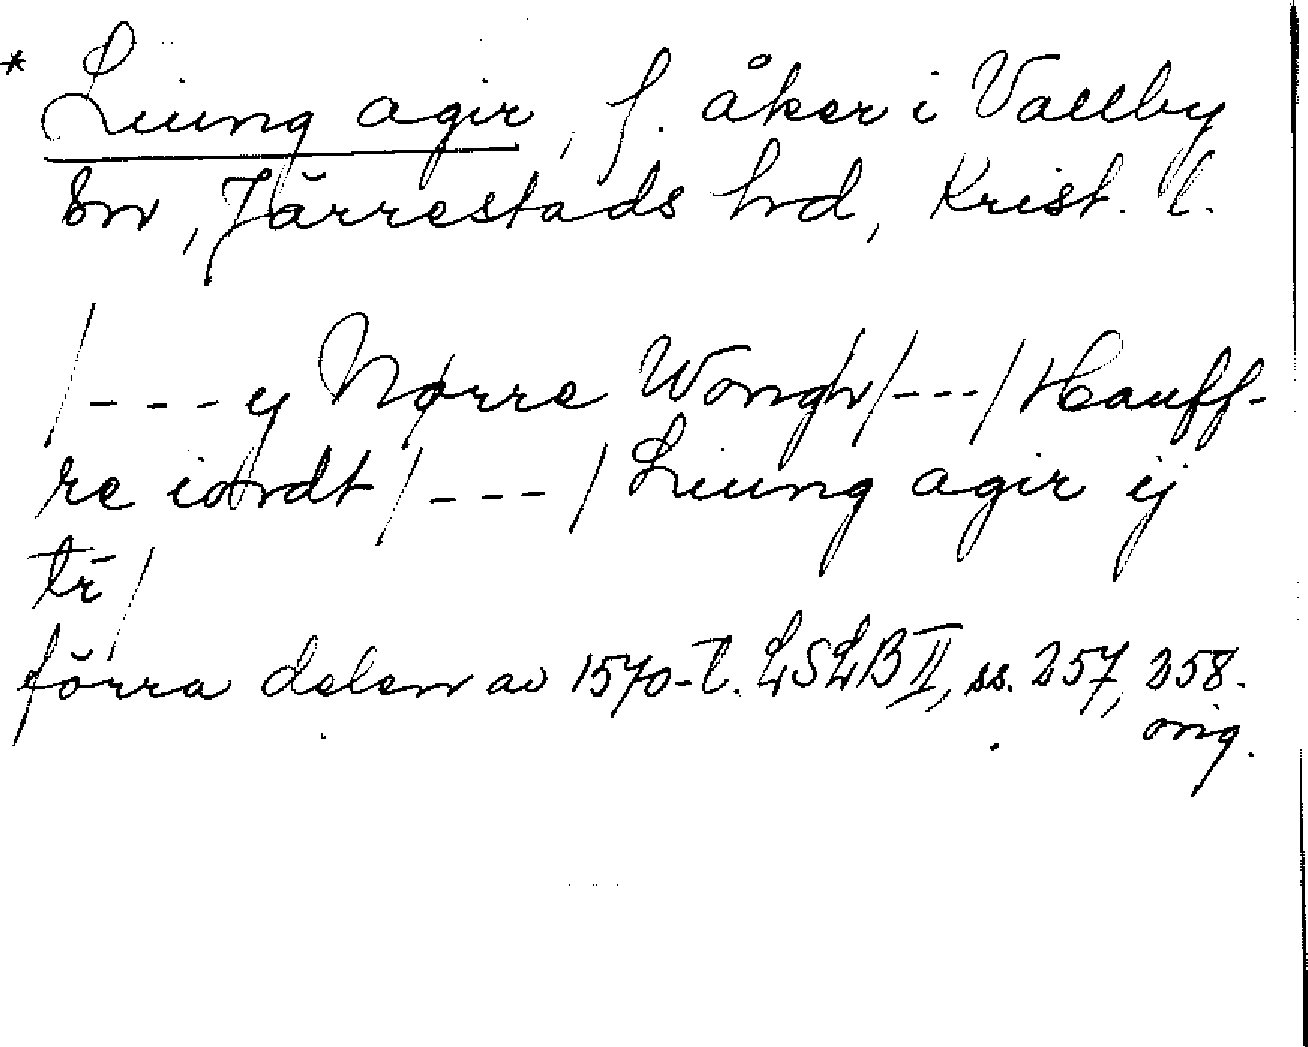 * Liung agir, f. åker i Vallby
sn, Järrestads hrd, Krist. l.
/---y Nørre Wongh/---/Hauff-
re iordt/---/Liung agir ij
tr/
förra delen av 1570-t. LSLB II, ss. 257, 258.
orig.